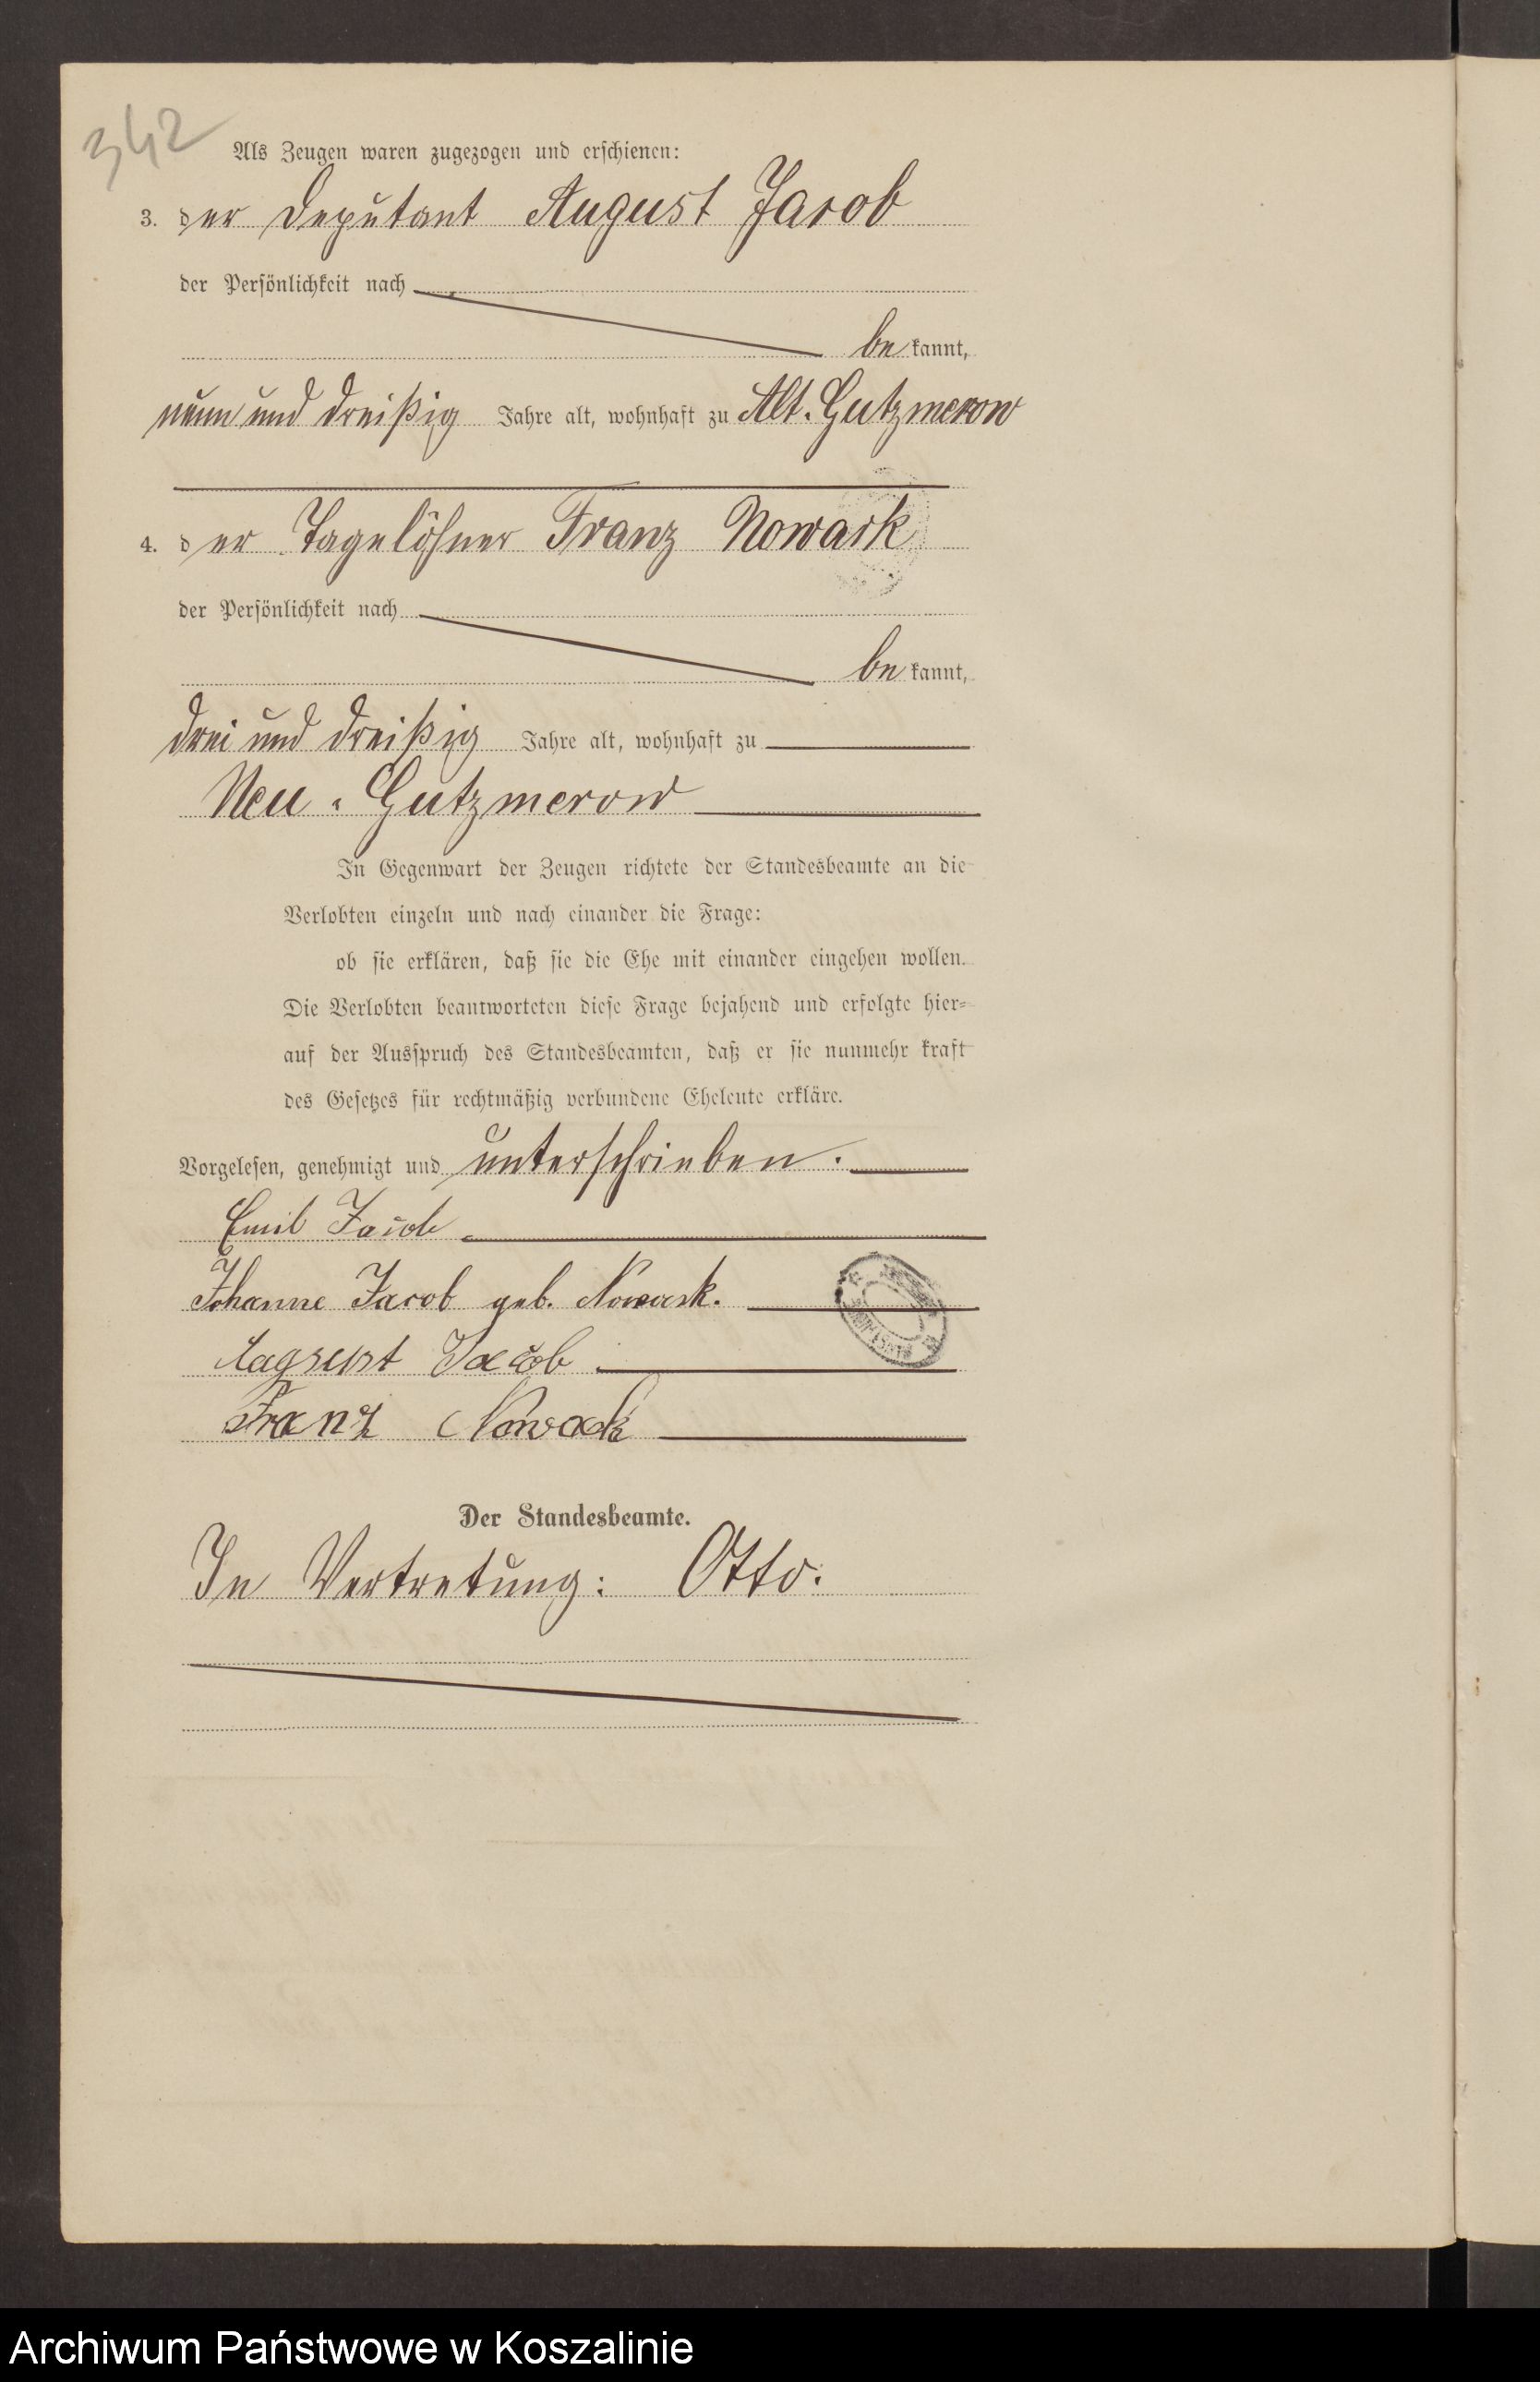 342
Als Zeugen waren zugezogen und erschienen:
3. der Deputant August Jacob
der Persönlichkeit nach
be kannt,
neun und dreißig Jahre alt, wohnhaft zu Alt-Gutzmerow
4. der Tagelöhner Franz Nowack
der Persönlichkeit nach
be kannt,
drei und dreißig Jahre alt, wohnhaft zu
Neu-Gutzmerow
In Gegenwart der Zeugen richtete der Standesbeamte an die
Verlobten einzeln und nach einander die Frage:
ob sie erklären, daß sie die Ehe mit einander eingehen wollen.
Die Verlobten beantworteten diese Frage bejahend und erfolgte hier-
auf der Ausspruch des Standesbeamten, daß er sie nunmehr kraft
des Gesetzes für rechtmäßig verbundene Eheleute erkläre.
Vorgelesen, genehmigt und unterschrieben.
Emil Jacob
Johanne Jacob geb. Nowack.
Jacob
Franz Nowack
Der Standesbeamte.
In Vertretung: Otto.
Archiwum Państwowe w Koszalinie